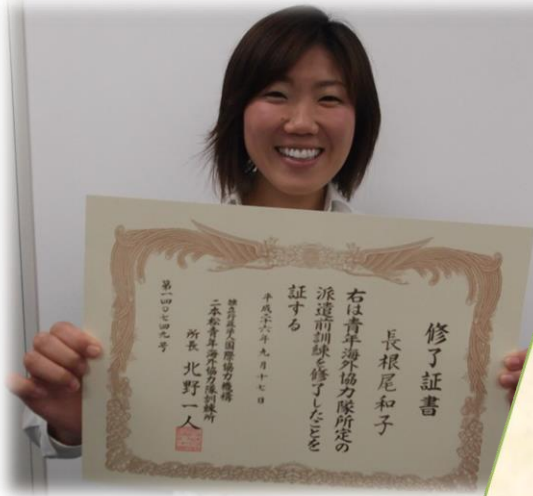 修了証書
長根尾和子
右は青年海外協力隊所定の
派遣前訓練を修了したことを
証する
平成二十六年九月十七日
独立行政法人国際協力機構
二本松青年海外協力隊訓練所
所長 北野一人
第一四〇七四九号